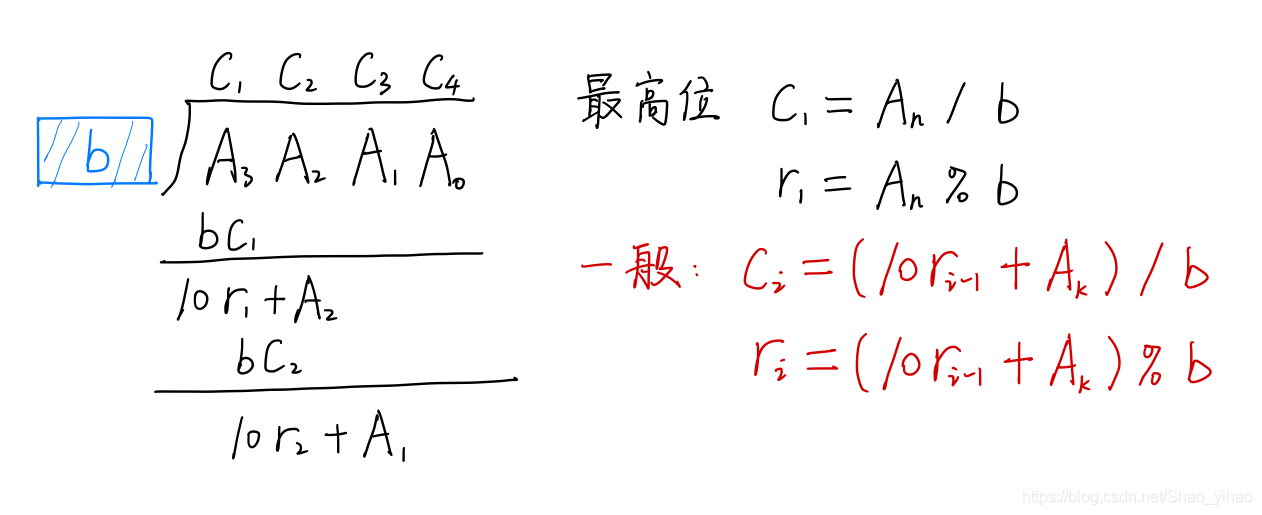 C₁ C₂ C₃ C₄
b A₃ A₂ A₁ A₀
bC₁
10r₁+A₂
bC₂
10r₂+A₁
最高位 C₁ = Aₙ / b
r₁ = Aₙ % b
一般: Cᵢ = (10rᵢ₋₁ + Aₖ) / b
rᵢ = (10rᵢ₋₁ + Aₖ) % b
https://blog.csdn.net/Shao_yihao